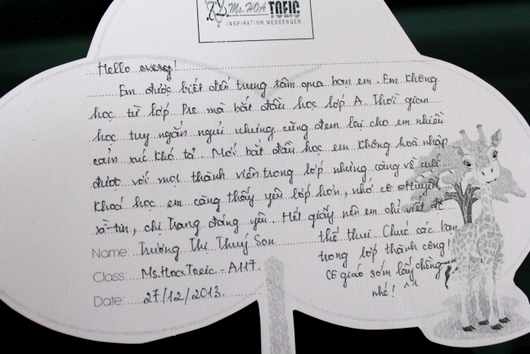 Ms. HOA TOEIC
INSPIRATION MESSENGER
Hello every!
Em được biết đến trung tâm qua bạn em. Em không
học từ lớp Pre mà bắt đầu học lớp A. Thời gian
học tuy ngắn ngủi nhưng cũng đem lại cho em nhiều
cảm xúc khó tả. Mới bắt đầu học em không hoà nhập
được với mọi thành viên trong lớp nhưng càng về cuối
khoá học em càng thấy yêu lớp hơn, nhớ cô
xờ-tin, chị Trang đáng yêu. Hết giấy nên em chỉ viết đc
thế thui. Chúc các bạn
trong lớp thành công!
Cô giáo sớm lấy chồng
nhé! ^^
Name: Trương Thị Thuý Son
Class: Ms.Hoa Toeic - A117.
Date: 27/12/2013.